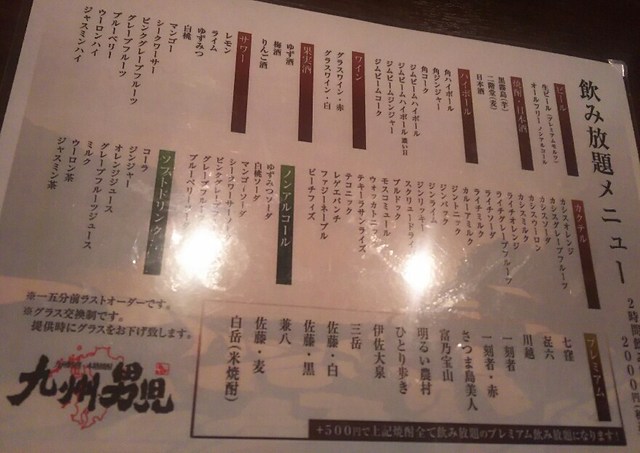 飲み放題メニュー
2時間
2000円
ビール
生ビール(プレミアムモルツ)
オールフリー(ノンアルコール)
焼酎・日本酒
黒霧島(芋)
二階堂(麦)
日本酒
ハイボール
角ハイボール
角ジンジャー
角コーク
ジムビームハイボール
ジムビームジンジャー
ジムビームコーク
ワイン
グラスワイン・赤
グラスワイン・白
果実酒
ゆず酒
梅酒
りんご酒
サワー
レモン
ライム
ゆずみつ
白桃
マンゴー
シークワーサー
ピンクグレープフルーツ
グレープフルーツ
ブルーベリー
ウーロンハイ
ジャスミンハイ
カクテル
カシスオレンジ
カシスグレープフルーツ
カシスソーダ
カシスウーロン
カシスミルク
ライチオレンジ
ライチグレープフルーツ
ライチソーダ
ライチミルク
カルーアミルク
ジントニック
ジンバック
ジンライム
ジンリッキー
スクリュードライバー
ブルドック
モスコミュール
ウォッカトニック
テキーラサンライズ
テコニック
レゲエパンチ
ファジーネーブル
ピーチフィズ
ノンアルコール
ゆずみつソーダ
白桃ソーダ
マンゴーソーダ
シークワーサーソーダ
ピンクグレープ
グレープフルーツ
ブルーベリー
ソフトドリンク
コーラ
ジンジャー
オレンジジュース
グレープフルーツジュース
ミルク
ウーロン茶
ジャスミン茶
プレミアム
七窪
在六
川越
一刻者
一刻者・赤
さつま島美人
富乃宝山
明るい農村
ひとり歩き
伊佐大泉
三岳
佐藤・白
佐藤・黒
兼八
佐藤・麦
白岳(米焼酎)
+500円で上記焼酎全て飲み放題のプレミアム飲み放題になります!
※一五分前ラストオーダーです。
※グラス交換制です。
提供時にグラスをお下げ致します。
九州男児